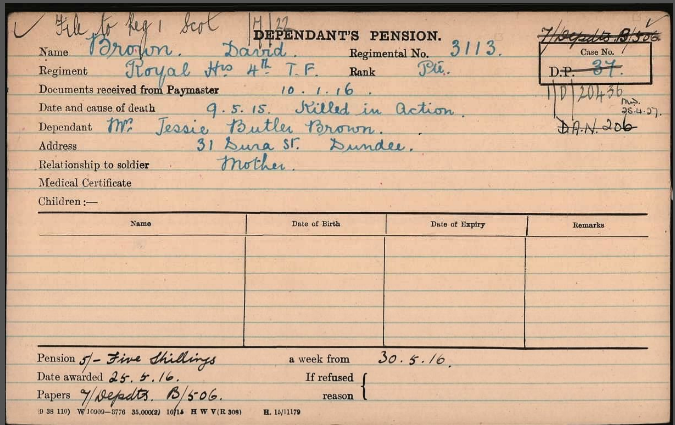 File to Reg 1 Scot 17/22
DEPENDANT'S PENSION.
7/Depdts B/506
Name Brown. David. Regimental No. 3113.
Case No.
D.P. 37.
Regiment Royal Hrs 4th T.F. Rank Pte.
Documents received from Paymaster 10.1.16.
1/D/20436
26.4.27.
Date and cause of death 9.5.15. Killed in Action.
D.A.N. 206
Dependant Mrs Jessie Butler Brown.
Address 31 Dura St. Dundee.
Relationship to soldier Mother.
Medical Certificate
Children:—
Name Date of Birth Date of Expiry Remarks
Pension 5/- Five Shillings a week from 30.5.16.
Date awarded 25.5.16. If refused
Papers 7/Depdts. B/506. reason
(D 38 110) W 10909—3776 35,000(2) 10/15 H W V(R 308) H. 15/11179